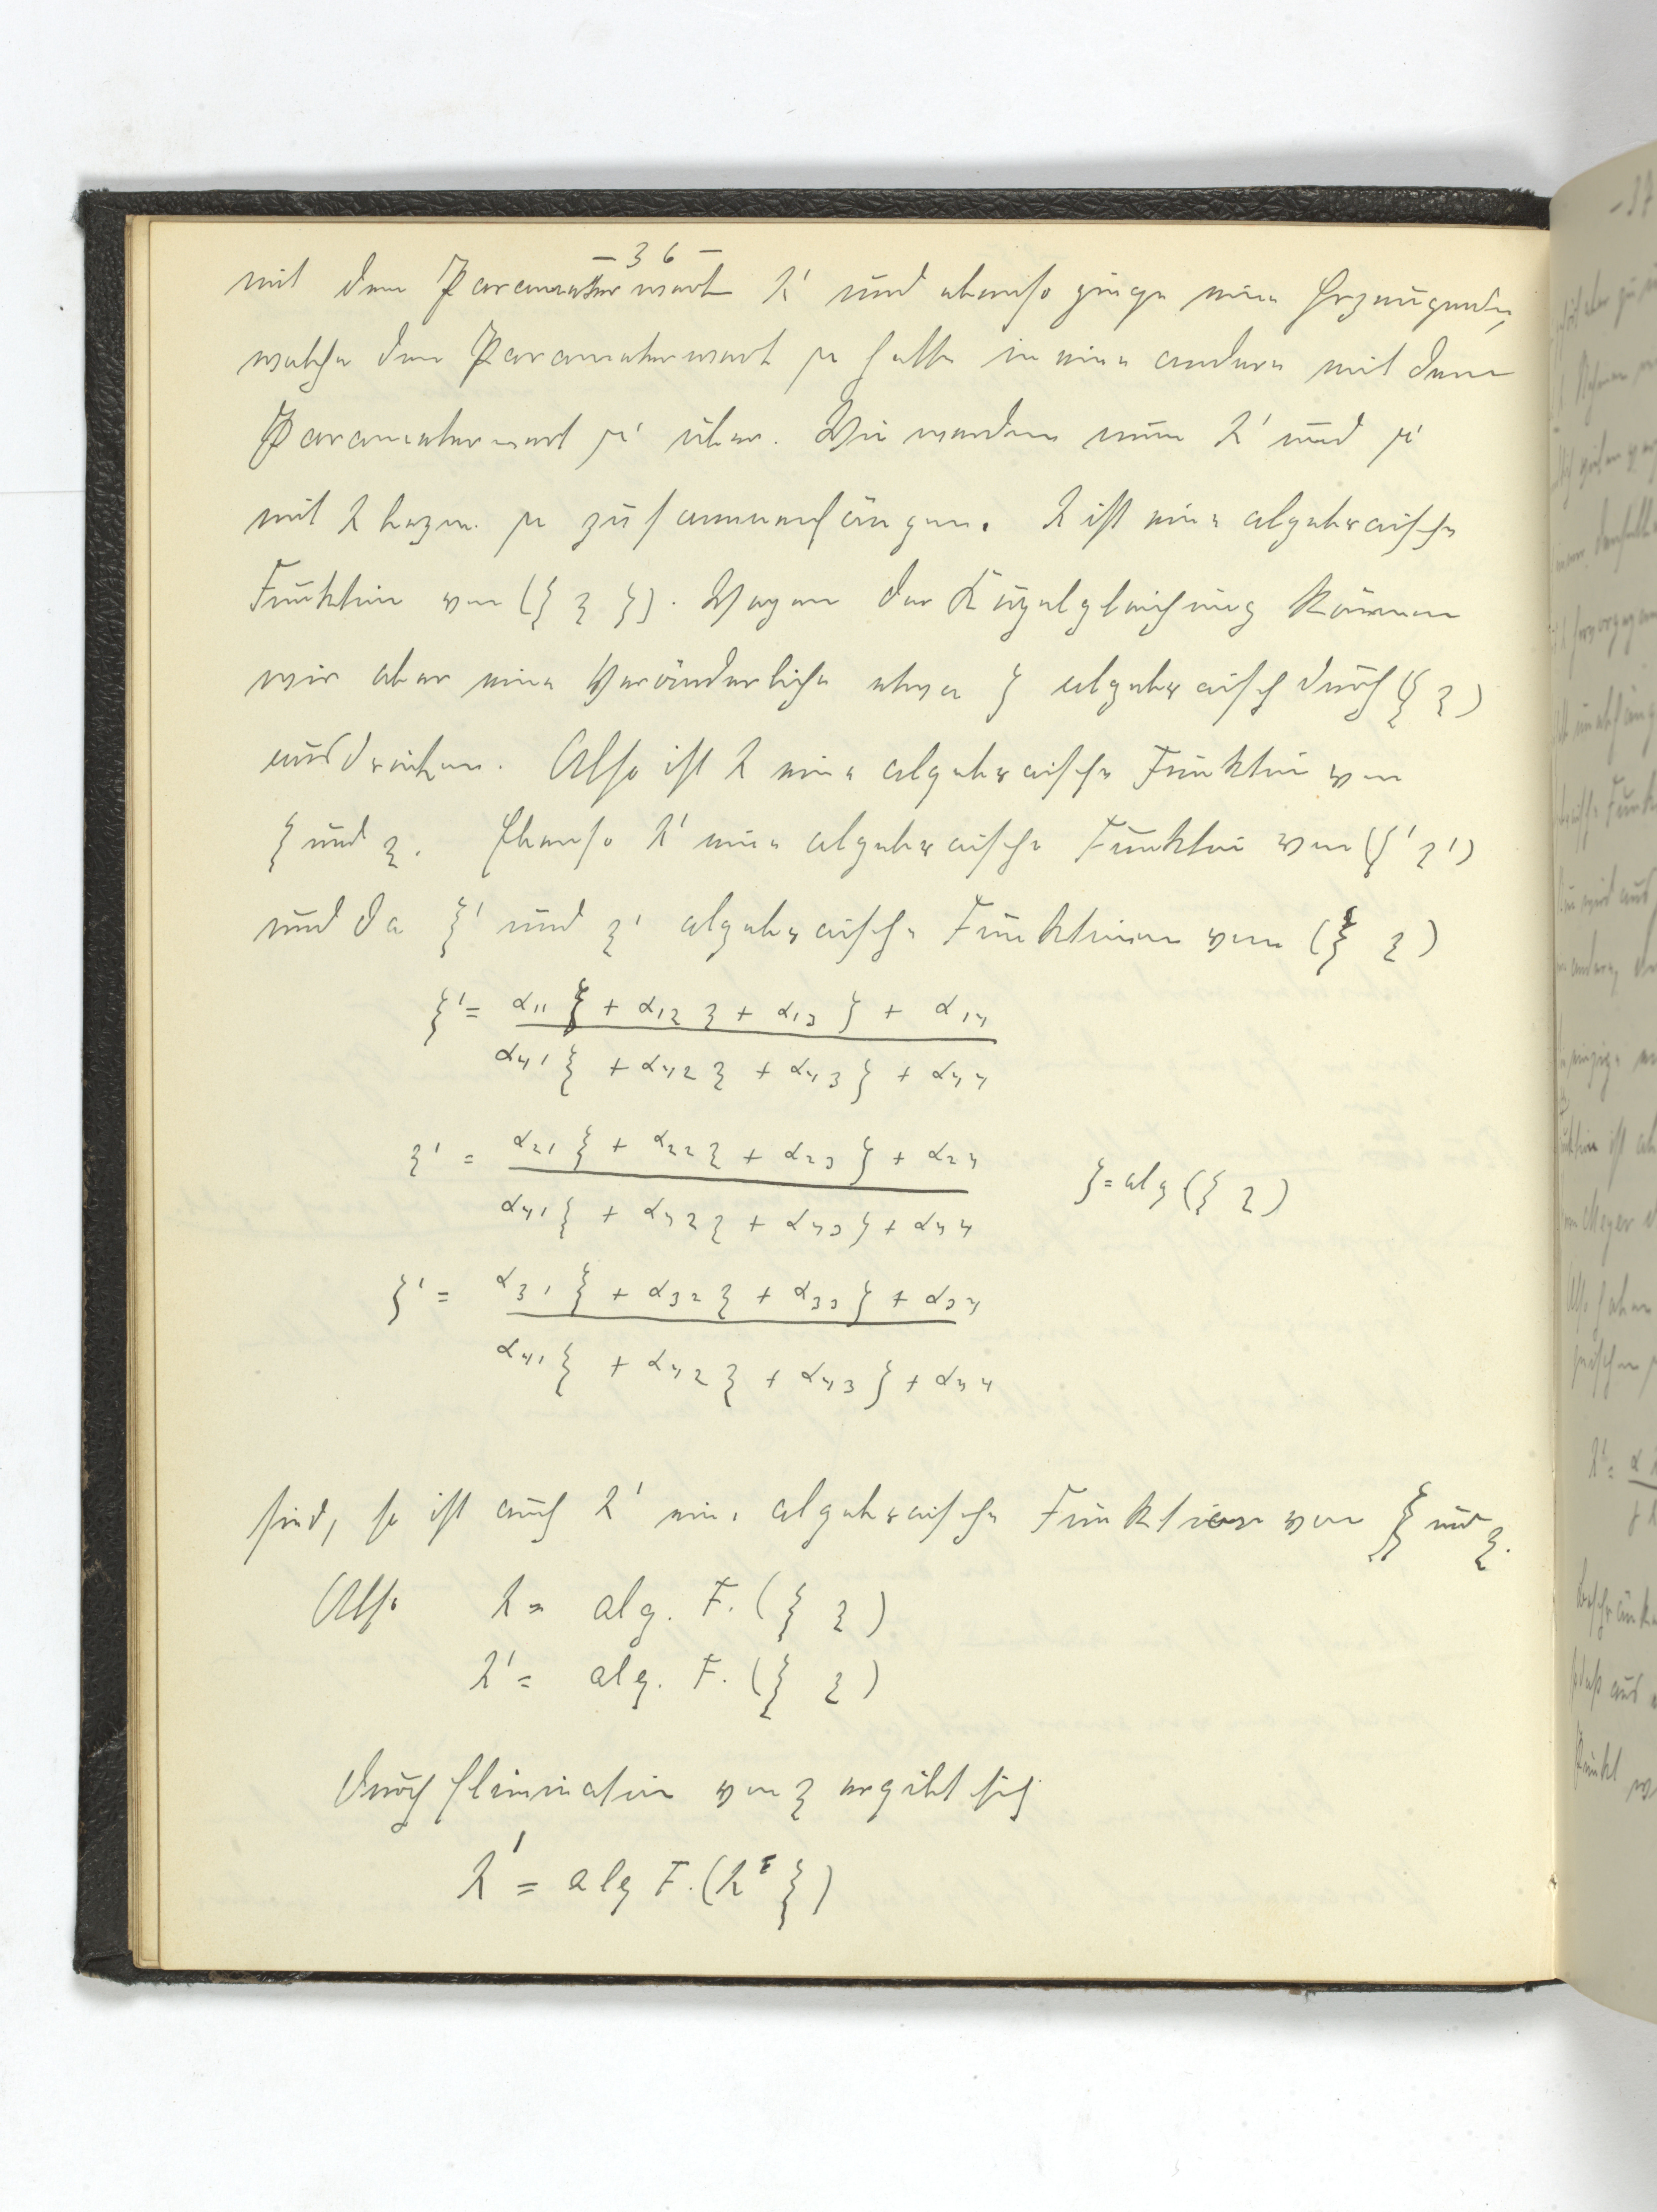 – 36 –
mit dem Parameterwert λ' und ebenso ginge eine Erzeugende,
welche den Parameterwert μ hatte in eine andere mit dem
Parameterwert μ' über. Wie werden nun λ' und μ'
mit λ bezw. μ zusammenhängen. λ ist eine algebraische
Funktion von (ξ η ζ). Wegen der Kugelgleichung können
wir aber eine Veränderliche etwa ζ algebraisch durch (ξ η)
ausdrücken. Also ist λ eine algebraische Funktion von
ξ und η. Ebenso λ' eine algebraische Funktion von (ξ' η')
und da ξ' und η' algebraische Funktionen von (ξ η)
ξ' = α11 ξ + α12 η + α13 ζ + α14
α41 ξ + α42 η + α43 ζ + α44
η' = α21 ξ + α22 η + α23 ζ + α24
α41 ξ + α42 η + α43 ζ + α44
ζ = alg (ξ η)
ζ' = α31 ξ + α32 η + α33 ζ + α34
α41 ξ + α42 η + α43 ζ + α44
sind, so ist auch λ' eine algebraische Funktion von ξ und η.
Also λ = alg. F. (ξ η)
λ' = alg. F. (ξ η)
Durch Elimination von η ergibt sich
λ' = alg F. (λ ξ)